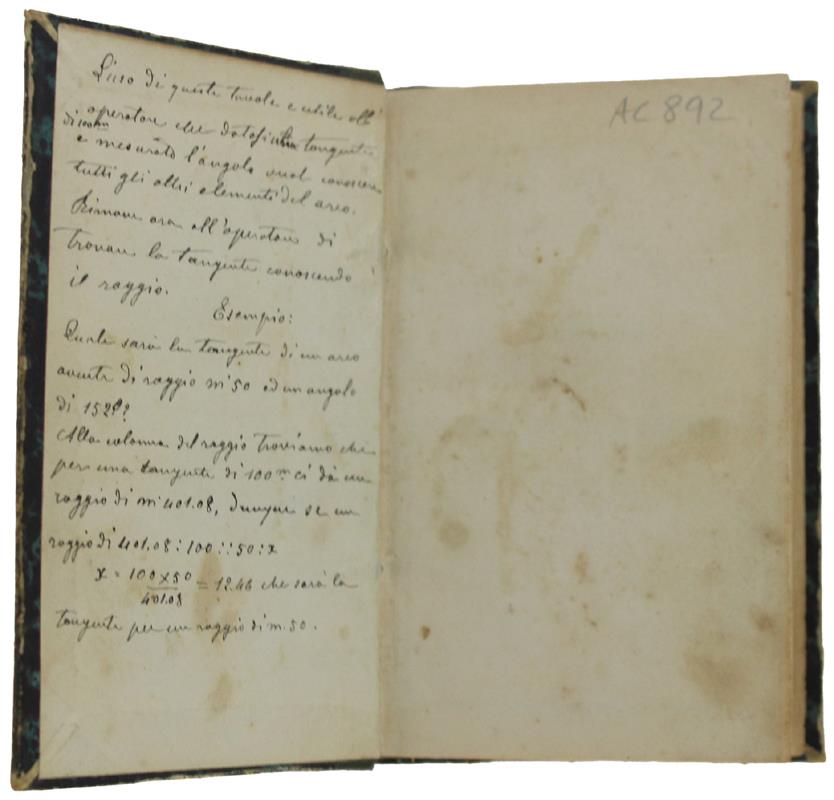 L'uso di queste tavole e utile all'
operatore che datosi una tangente
di 100m
e mesurato l'angolo vuol conoscere
tutti gli altri elementi del arco.
Rimane ora all'operatore di
trovare la tangente conoscendo
il raggio.
Esempio:
Quale sarà la tangente di un arco
avente di raggio m 50 ed un angolo
di 152°?
Alla colonna del raggio troviamo che
per una tangente di 100 m ci dà un
raggio di m. 401.08, dunque se un
raggio di 401.08 : 100 :: 50 : x
x = 100 x 50 / 401.08 = 12.46 che sarà la
tangente per un raggio di m. 50.
AC 892